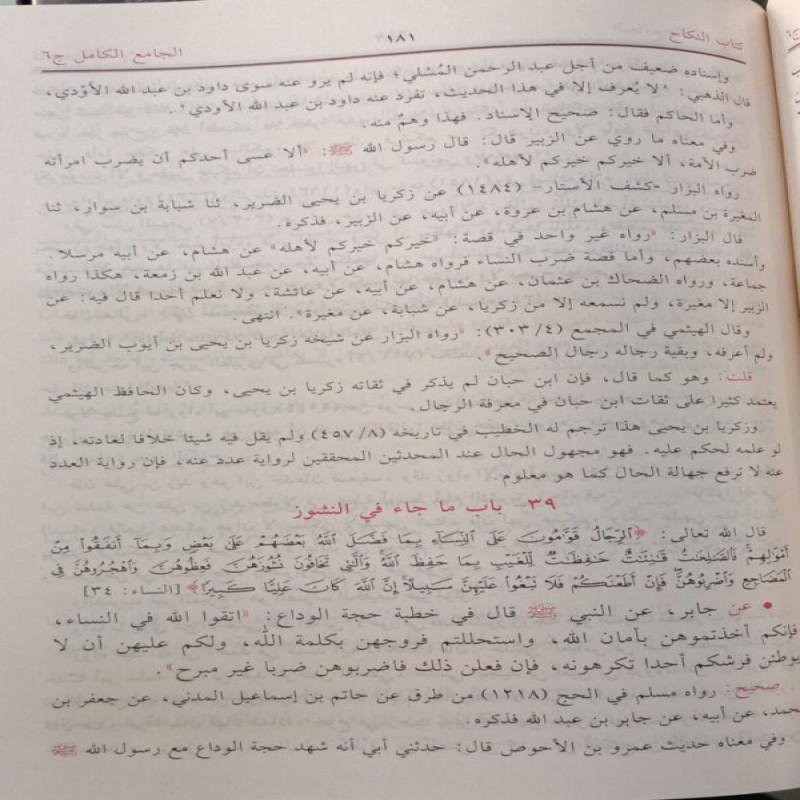 كتاب النكاح ١٨١ الجامع الكامل ج٦
وإسناده ضعيف من أجل عبد الرحمن المُسْلي؛ فإنه لم يرو عنه سوى داود بن عبد الله الأَوْدي،
قال الذهبي: "لا يُعرف إلا في هذا الحديث، تفرد عنه داود بن عبد الله الأودي".
وأما الحاكم فقال: صحيح الإسناد. فهذا وهمٌ منه.
وفي معناه ما روي عن الزبير قال: قال رسول الله ﷺ: "ألا عسى أحدكم أن يضرب امرأته
ضرب الأمة، ألا خيركم خيركم لأهله".
رواه البزار -كشف الأستار- (١٤٨٤) عن زكريا بن يحيى الضرير، ثنا شبابة بن سوار، ثنا
المغيرة بن مسلم، عن هشام بن عروة، عن أبيه، عن الزبير، فذكره.
قال البزار: "رواه غير واحد في قصة: "خيركم خيركم لأهله" عن هشام، عن أبيه مرسلا.
وأسنده بعضهم، وأما قصة ضرب النساء فرواه هشام، عن أبيه، عن عبد الله بن زمعة، هكذا رواه
جماعة، ورواه الضحاك بن عثمان، عن هشام، عن أبيه، عن عائشة، ولا نعلم أحدا قال فيه: عن
الزبير إلا مغيرة، ولم نسمعه إلا من زكريا، عن شبابة، عن مغيرة". انتهى.
وقال الهيثمي في المجمع (٤/ ٣٠٣): "رواه البزار عن شيخه زكريا بن يحيى بن أيوب الضرير،
ولم أعرفه، وبقية رجاله رجال الصحيح".
قلت: وهو كما قال، فإن ابن حبان لم يذكر في ثقاته زكريا بن يحيى، وكان الحافظ الهيثمي
يعتمد كثيرا على ثقات ابن حبان في معرفة الرجال.
وزكريا بن يحيى هذا ترجم له الخطيب في تاريخه (٨/ ٤٥٧) ولم يقل فيه شيئا خلافا لعادته، إذ
لو علمه لحكم عليه. فهو مجهول الحال عند المحدثين المحققين لرواية عدد عنه، فإن رواية العدد
عنه لا ترفع جهالة الحال كما هو معلوم.
٣٩- باب ما جاء في النشوز
قال الله تعالى: ﴿ٱلرِّجَالُ قَوَّٰمُونَ عَلَى ٱلنِّسَآءِ بِمَا فَضَّلَ ٱللَّهُ بَعْضَهُمْ عَلَىٰ بَعْضٍ وَبِمَآ أَنفَقُوا۟ مِنْ
أَمْوَٰلِهِمْ فَٱلصَّٰلِحَٰتُ قَٰنِتَٰتٌ حَٰفِظَٰتٌ لِّلْغَيْبِ بِمَا حَفِظَ ٱللَّهُ وَٱلَّٰتِى تَخَافُونَ نُشُوزَهُنَّ فَعِظُوهُنَّ وَٱهْجُرُوهُنَّ فِى
ٱلْمَضَاجِعِ وَٱضْرِبُوهُنَّ فَإِنْ أَطَعْنَكُمْ فَلَا تَبْغُوا۟ عَلَيْهِنَّ سَبِيلًا إِنَّ ٱللَّهَ كَانَ عَلِيًّا كَبِيرًا﴾ [النساء: ٣٤]
• عن جابر، عن النبي ﷺ قال في خطبة حجة الوداع: "اتقوا الله في النساء،
فإنكم أخذتموهن بأمان الله، واستحللتم فروجهن بكلمة الله، ولكم عليهن أن لا
يوطئن فرشكم أحدا تكرهونه، فإن فعلن ذلك فاضربوهن ضربا غير مبرح".
صحيح: رواه مسلم في الحج (١٢١٨) من طرق عن حاتم بن إسماعيل المدني، عن جعفر بن
محمد، عن أبيه، عن جابر بن عبد الله فذكره.
وفي معناه حديث عمرو بن الأحوص قال: حدثني أبي أنه شهد حجة الوداع مع رسول الله ﷺ